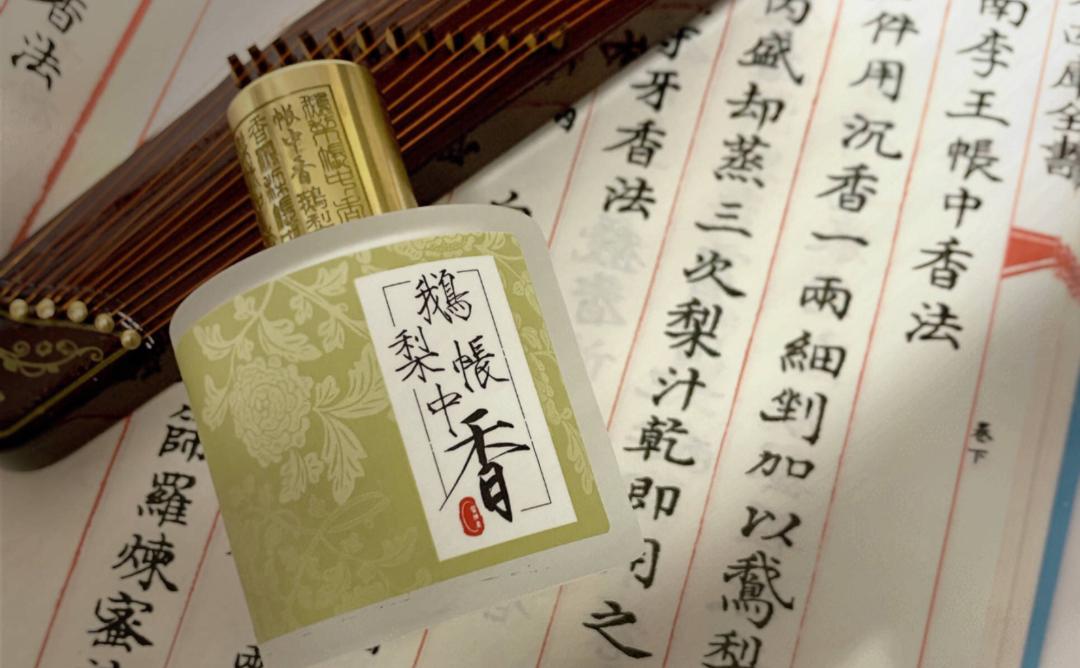 四庫全書
卷下
南李王帳中香法
件用沉香一兩細剉加以鵝梨
盛却蒸三次梨汁乾即用之
牙香法
師羅煉蜜
香法
鵝梨
帳中
香
帳中香鵝梨